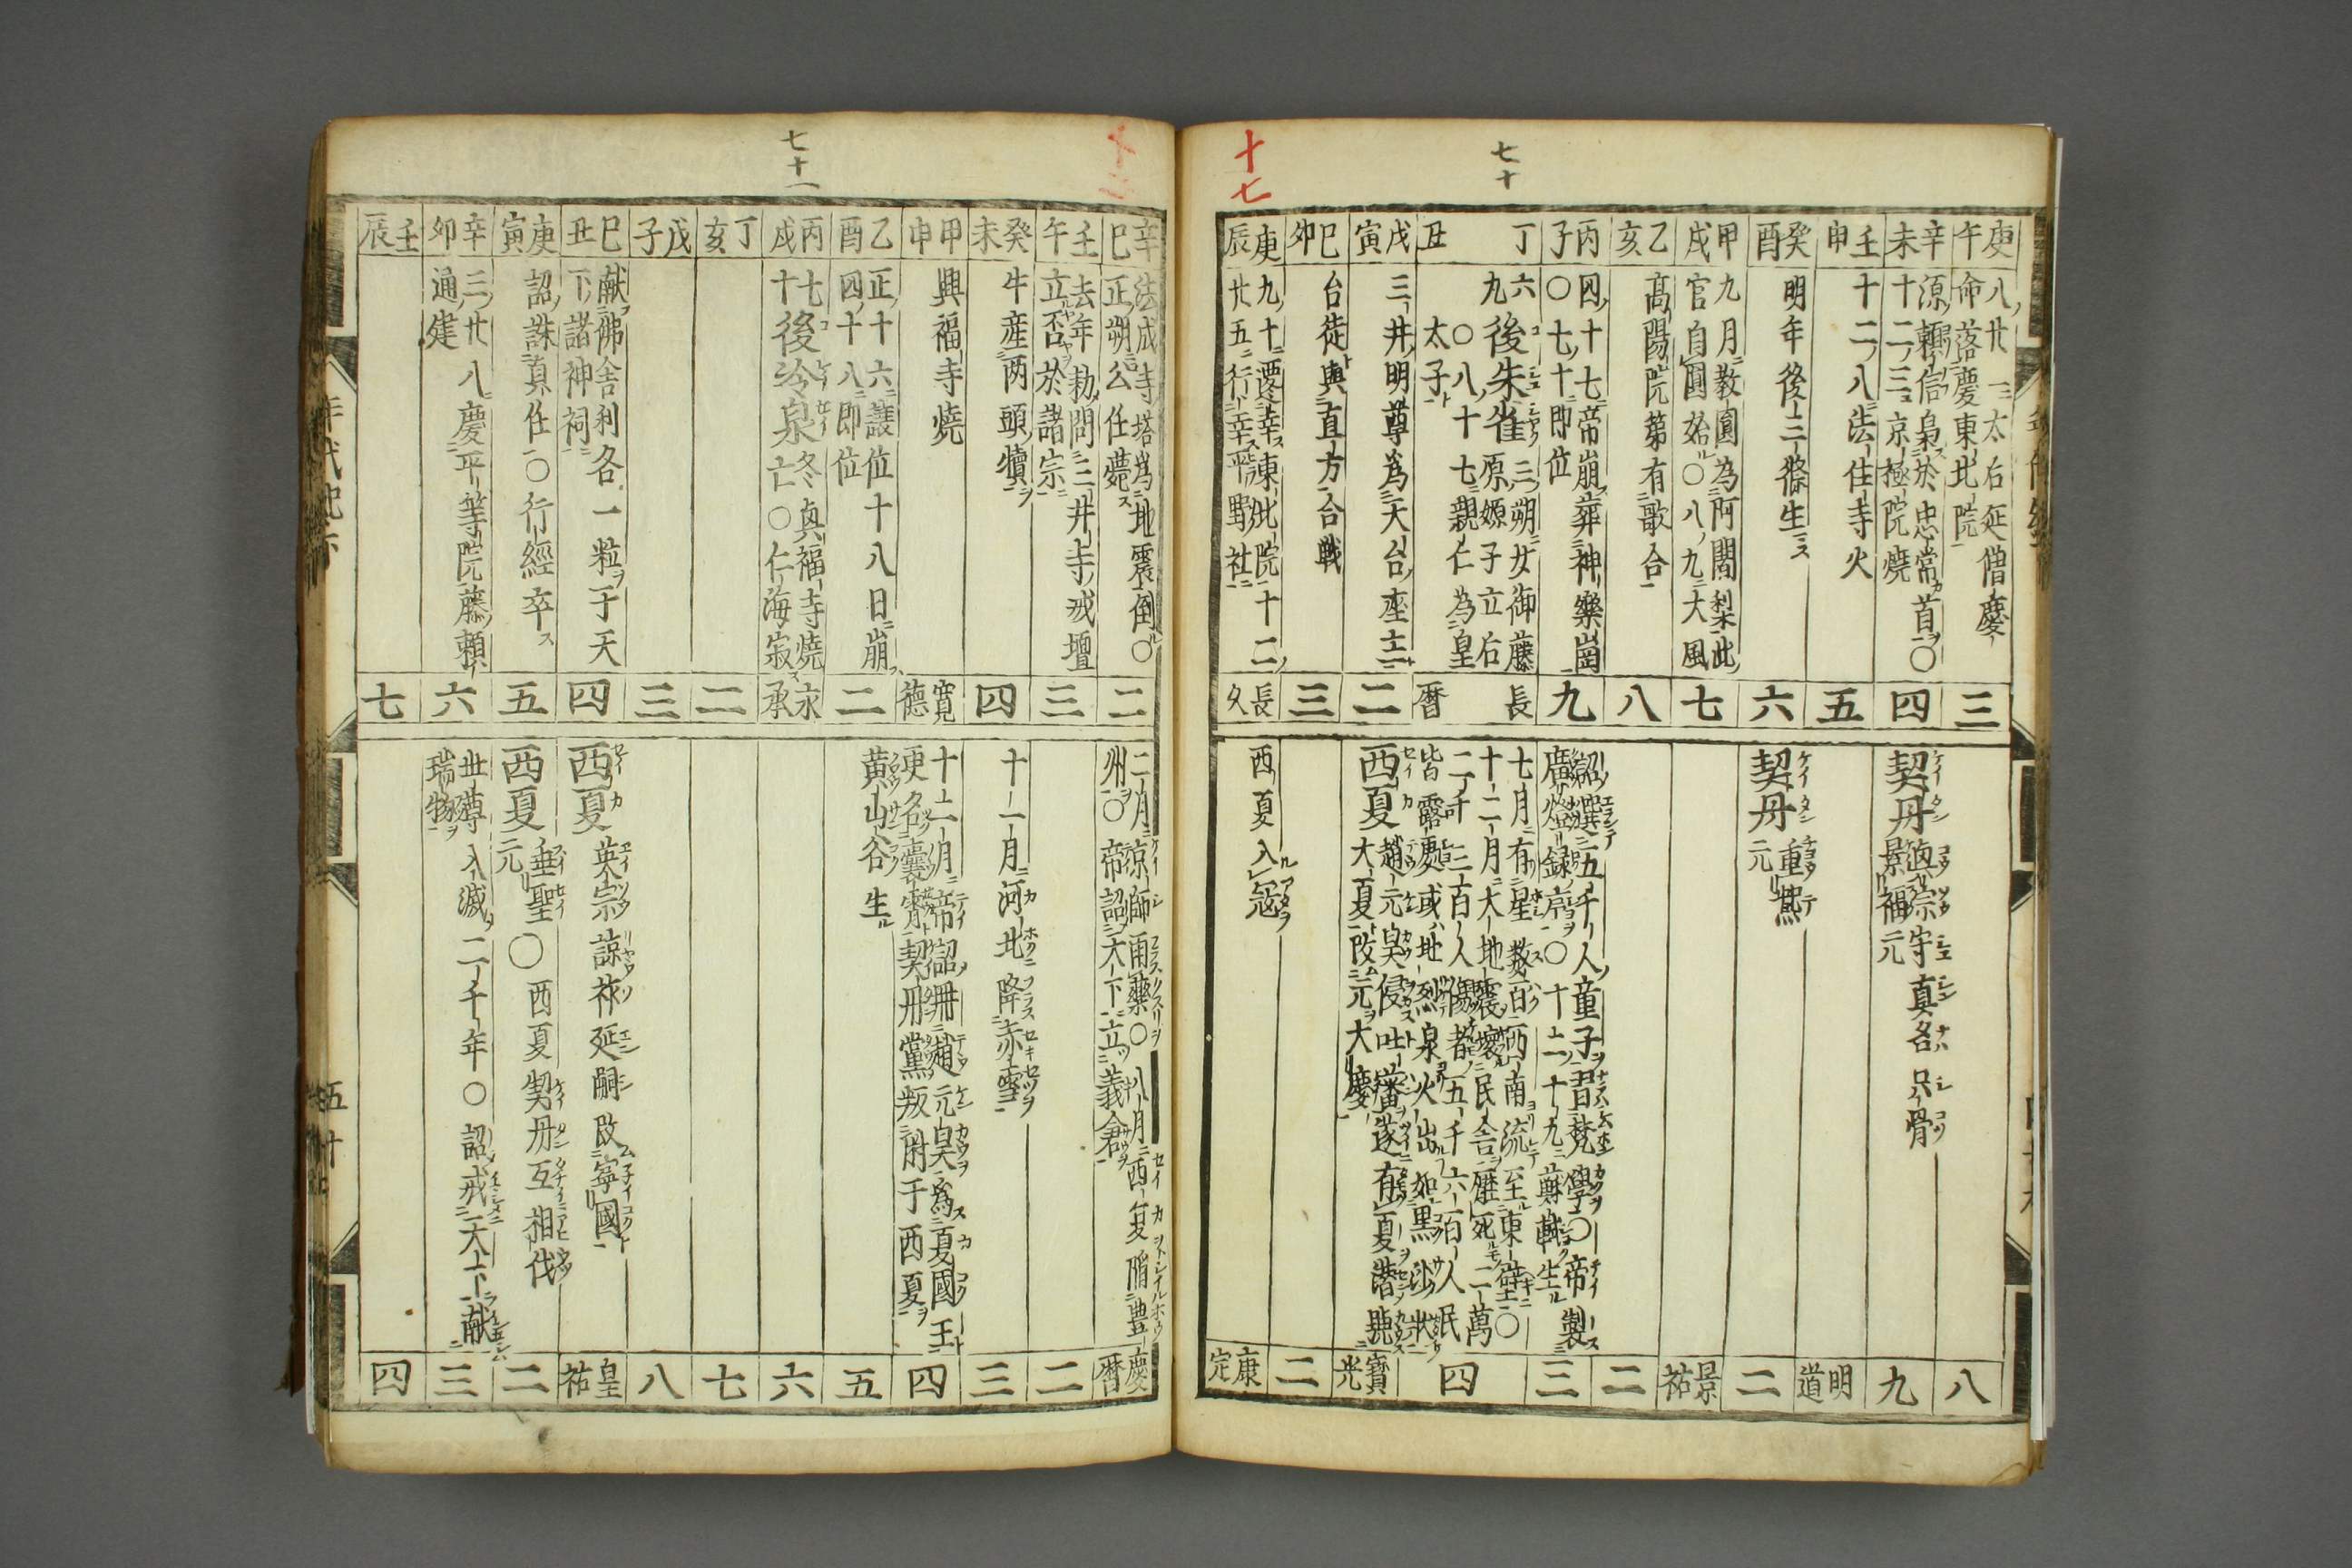 七十
十七
庚午
八ノ廿一ニ太右延僧慶
命落慶東北院
三
八
辛未
源頼信梟於忠常首〇
十二ノ三京極院焼
四
契丹 興宗宗真名只骨
景福元
九
壬申
十二ノ八法住寺火
五
明道
癸酉
明年後三條生ス
六
契丹 重熙
元
二
甲戌
九月教圓為阿闍梨此
官自圓始〇八ノ九大風
七
景祐
乙亥
高陽院第有歌合
八
二
丙子
四ノ十七帝崩葬神樂岡
〇七ノ十即位
九
詔選五千人童子習梵學〇帝製
廣燈録序〇十二十九蘇軾生
三
丁丑
六 後朱雀 三ノ朔女御藤
九 原嫄子立右
〇八ノ十七親仁為皇
太子
長暦
七月有星数百西南流至東壁〇
十二月大地震壊民舎歴死二萬
二千三百人傷者五千六百人民
皆露處或地烈泉火出如黒沙状
四
戊寅
三井明尊為天台座主
二
西夏 趙元昊侵吐蕃遂有夏潜號
大夏改元大慶
寶元
己卯
台徒與直方合戦
三
二
庚辰
九ノ十遷幸東北院十二ノ
廿五行幸平野社
長久
西夏入冦
康定
七十一
辛巳
法成寺塔為地震倒〇
正朔公任薨ス
二
二月諒師雨藥〇八月西夏陥豊
州〇帝詔天下立義倉
慶暦
壬午
去年勅問三井寺戒壇
立否於諸宗
三
二
癸未
牛産両頭犢
四
十一月河北降赤雪
三
甲申
興福寺焼
寛徳
十二月帝詔冊趙元昊為夏國王
更名曩霄契丹黨叛附于西夏
四
乙酉
正十六譲位十八日崩
四十八即位
二
黄山谷生
五
丙戌
七 後冷泉 冬真福寺焼
十 亡〇仁海寂
永承
六
丁亥
二
七
戊子
三
八
己丑
献佛舎利各一粒于天
下諸神祠
四
西夏 英宗諒祚延嗣改寧國
皇祐
庚寅
詔誅真任〇行經卒ス
五
西夏 垂聖〇西夏契丹互相伐
元
二
辛卯
三ノ廿八慶平等院藤頼
通建
六
世尊入滅二千年〇詔戒天下献
瑞物
三
壬辰
七
四
年代記下
五十